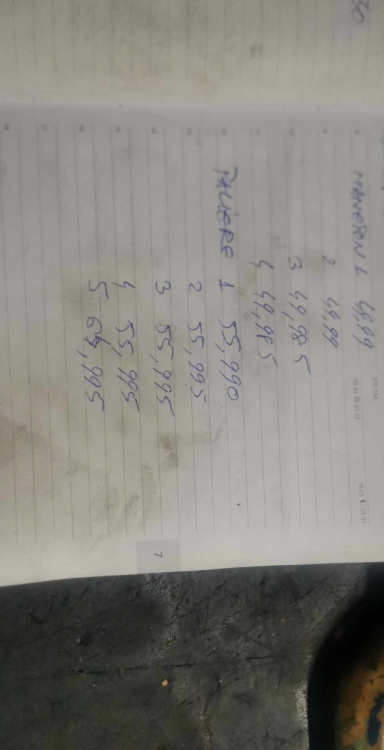 MANETON 1 49,99
2 49,99
3 49,985
4 49,985
PALIERE 1 55,990
2 55,995
3 55,995
4 55,995
5
7